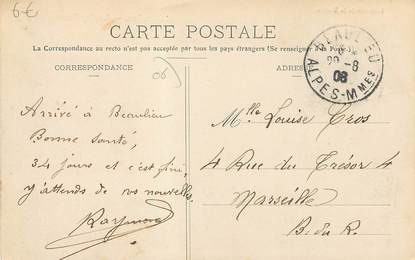 6€
CARTE POSTALE
La Correspondance au recto n'est pas acceptée par tous les pays étrangers (Se renseigner à la Poste)
CORRESPONDANCE
ADRESSE
BEAULIEU
29-8
08
ALPES-Mmes
06
Arrivé à Beaulieu
Bonne santé,
34 jours et c'est fini,
j'y attends de vos nouvelles.
Raymond
Mlle Louise Cros
4 Rue du Trésor 4
Marseille
B. du R.